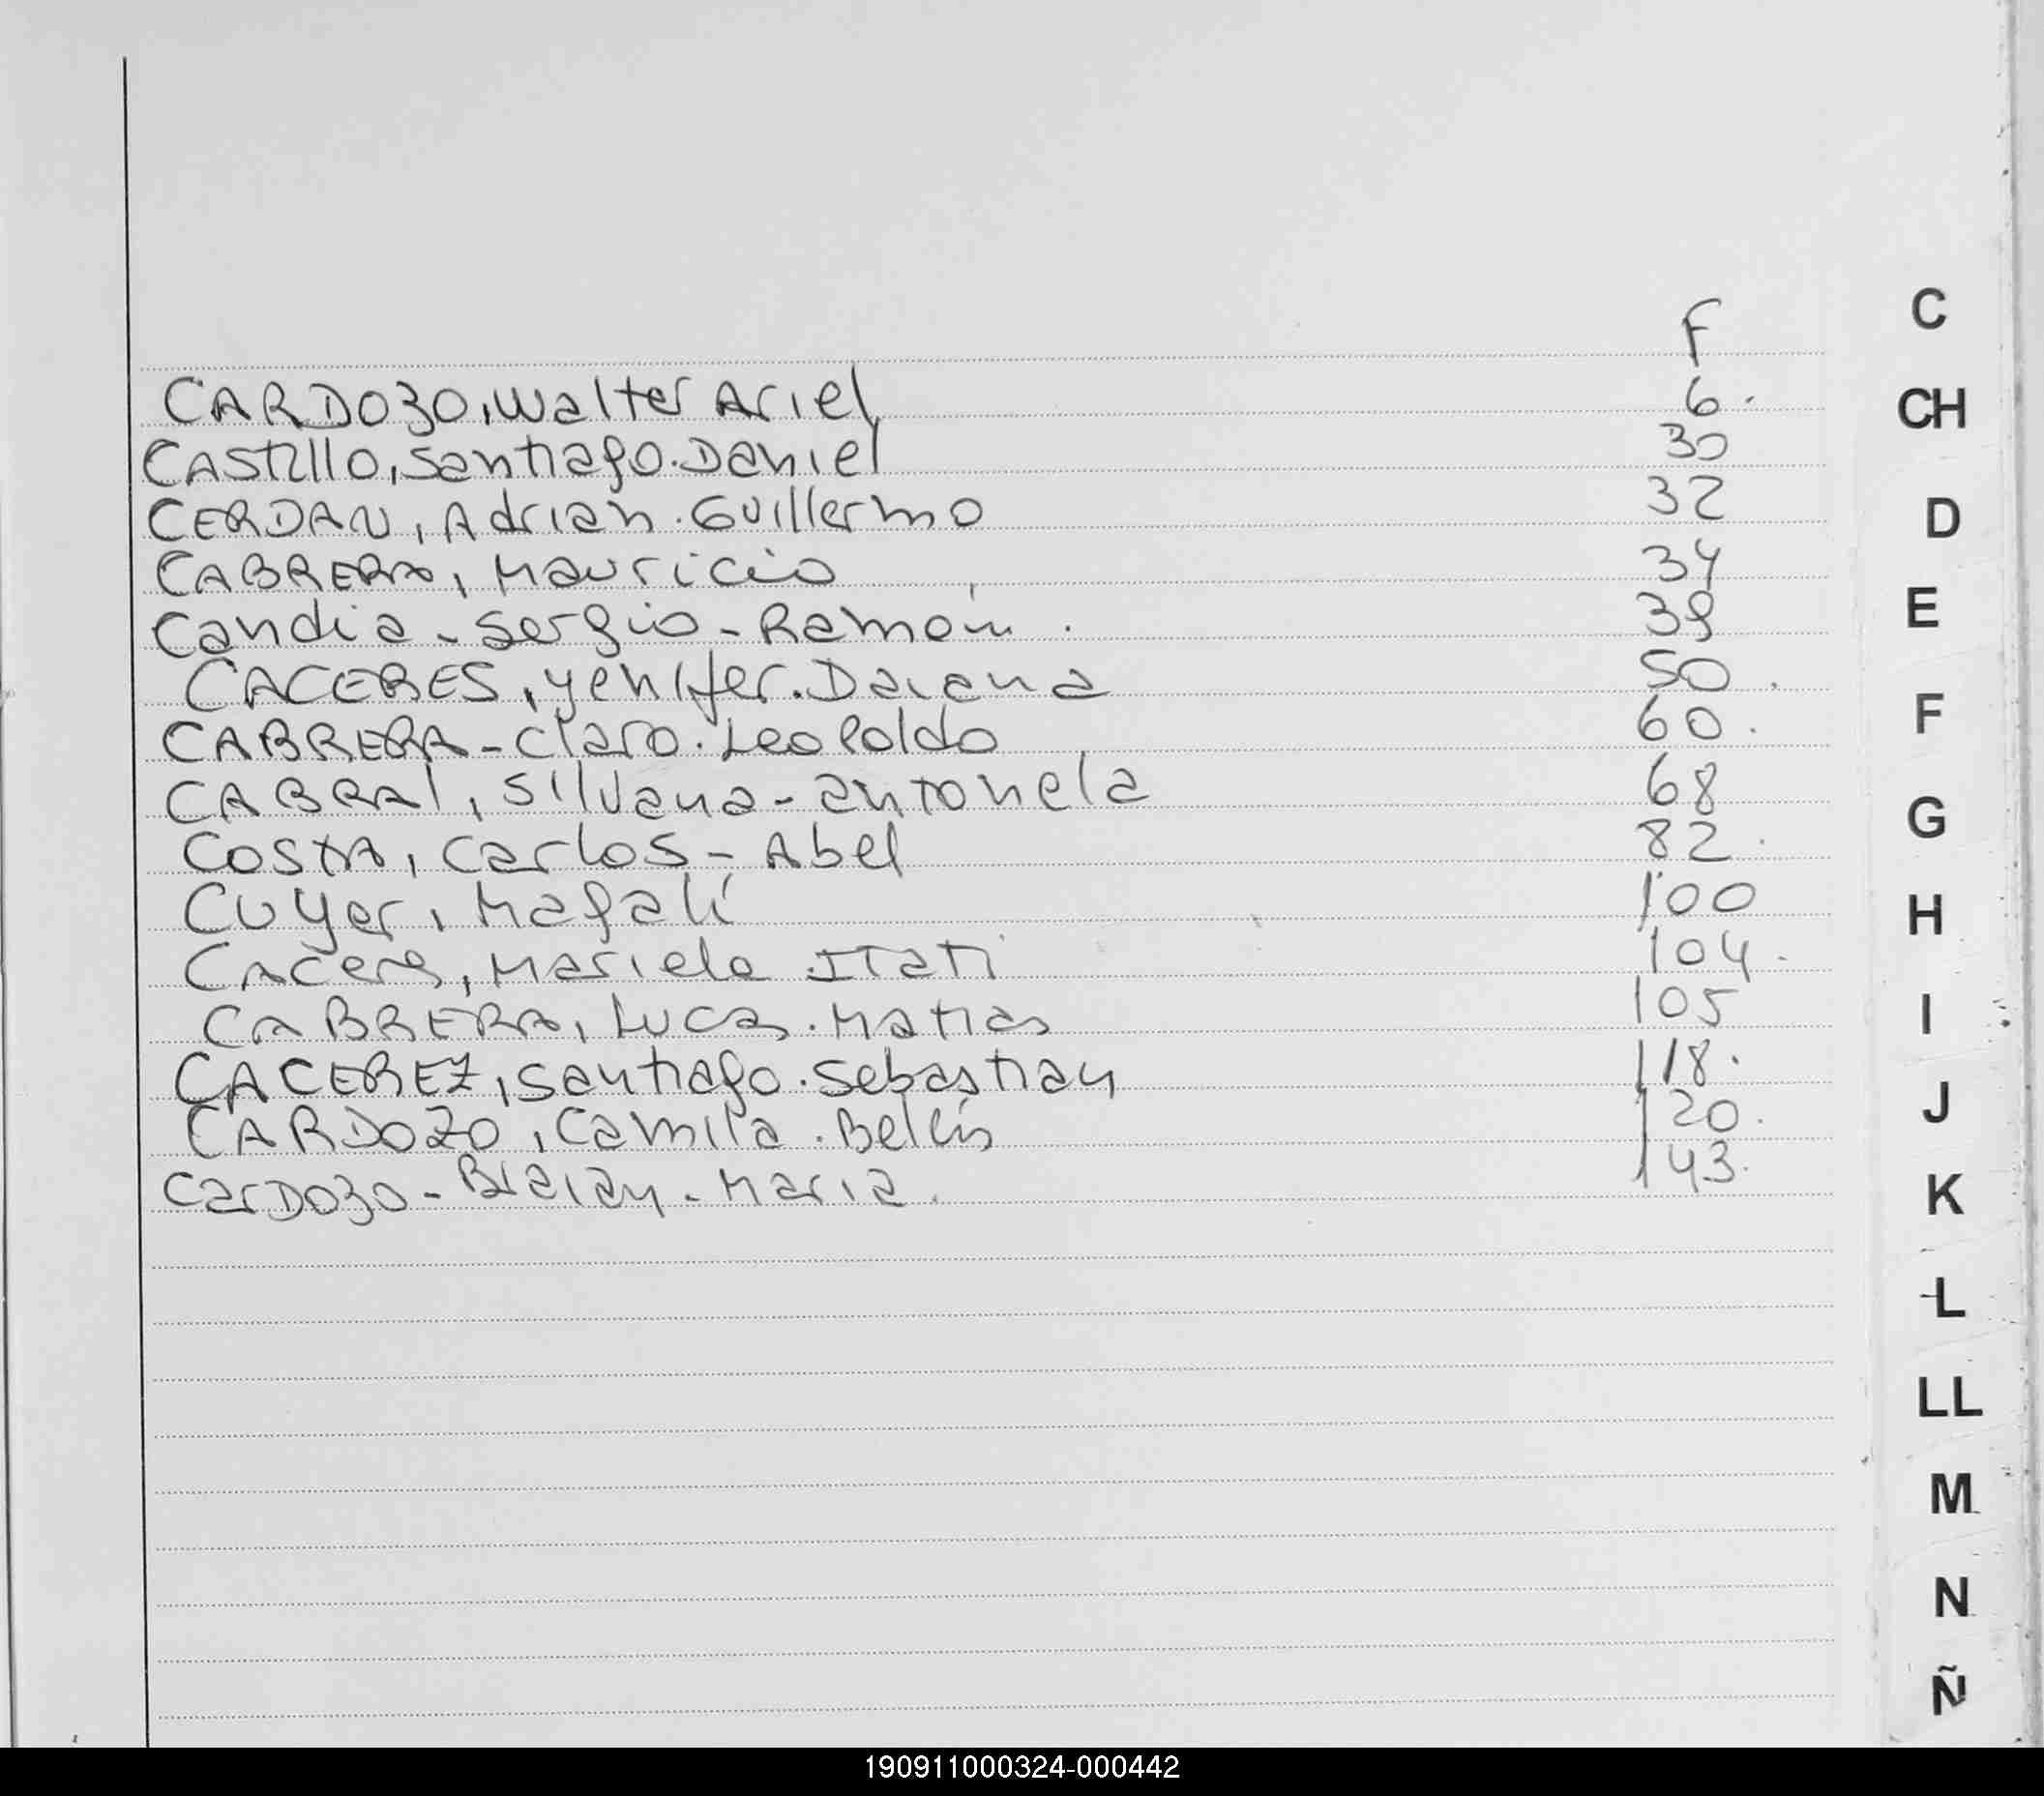 F
CARDOZO, Walter Ariel 6.
CASTILLO, Santiago. Daniel 30
CERDAN, Adrian. Guillermo 32
CABRERA, Mauricio 34
Candia - Sergio - Ramón. 39
CACERES, Yenifer. Daiana 50.
CABRERA - Claro. Leopoldo 60.
CABRAL, Silvana - Antonela 68
COSTA, Carlos - Abel 82.
Cuyer, Magalí 100
Caceres, Mariela Itatí 104.
CABRERA, Lucas. Matias 105
CACEREZ, Santiago. Sebastian 118.
CARDOZO, Camila. Belén 120.
Cardozo - Braian - Maria. 143.
C
CH
D
E
F
G
H
I
J
K
L
LL
M
N
Ñ
190911000324-000442